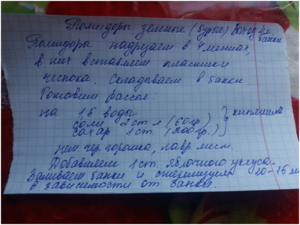 Помидоры зеленые (бурые)
Помидоры надрезаем на 4 части
в них вставляем пластики
чеснока. Складываем в банки
Готовим рассол
на 1,5 воды
соли 2 ст л (60гр.) } кипятим
сахар 1 ст (200гр.)
пер. чер горошка, лавр. лист.
Добавляем 1 ст яблочного уксуса.
Заливаем банки и стерилизуем 10-15 м
в зависимости от банки.